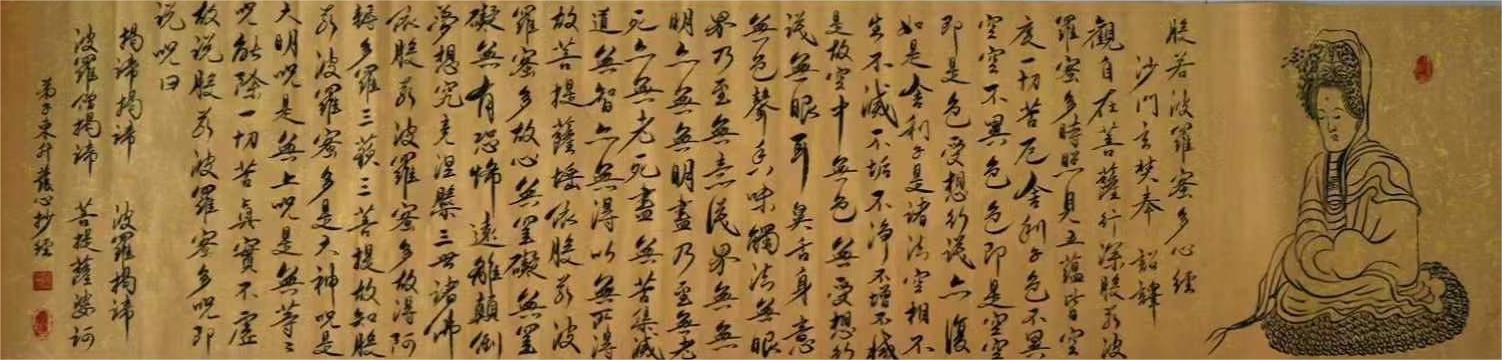 般若波羅蜜多心經
沙門玄奘奉 詔譯
觀自在菩薩行深般若波
羅蜜多時照見五蘊皆空
度一切苦厄舍利子色不異
空空不異色色即是空空
即是色受想行識亦復
如是舍利子是諸法空相不
生不滅不垢不淨不增不減
是故空中無色無受想行
識無眼耳鼻舌身意
無色聲香味觸法無眼
界乃至無意識界無無
明亦無無明盡乃至無老
死亦無老死盡無苦集滅
道無智亦無得以無所得
故菩提薩埵依般若波
羅蜜多故心無罣礙無罣
礙無有恐怖遠離顛倒
夢想究竟涅槃三世諸佛
依般若波羅蜜多故得阿
耨多羅三藐三菩提故知般
若波羅蜜多是大神呪是
大明呪是無上呪是無等等
呪能除一切苦真實不虛
故說般若波羅蜜多呪即
說呪曰
揭諦揭諦 波羅揭諦
波羅僧揭諦 菩提薩婆訶
弟子 心抄經